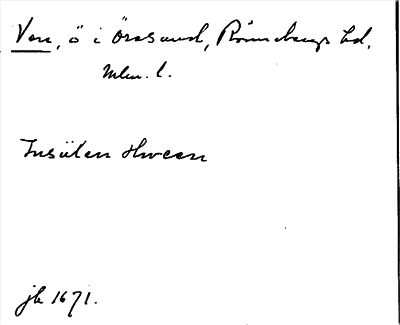 Ven, ö i Öresund, Rönnebergs hd,
Mlm. l.
Insulen Hween
jb 1671.